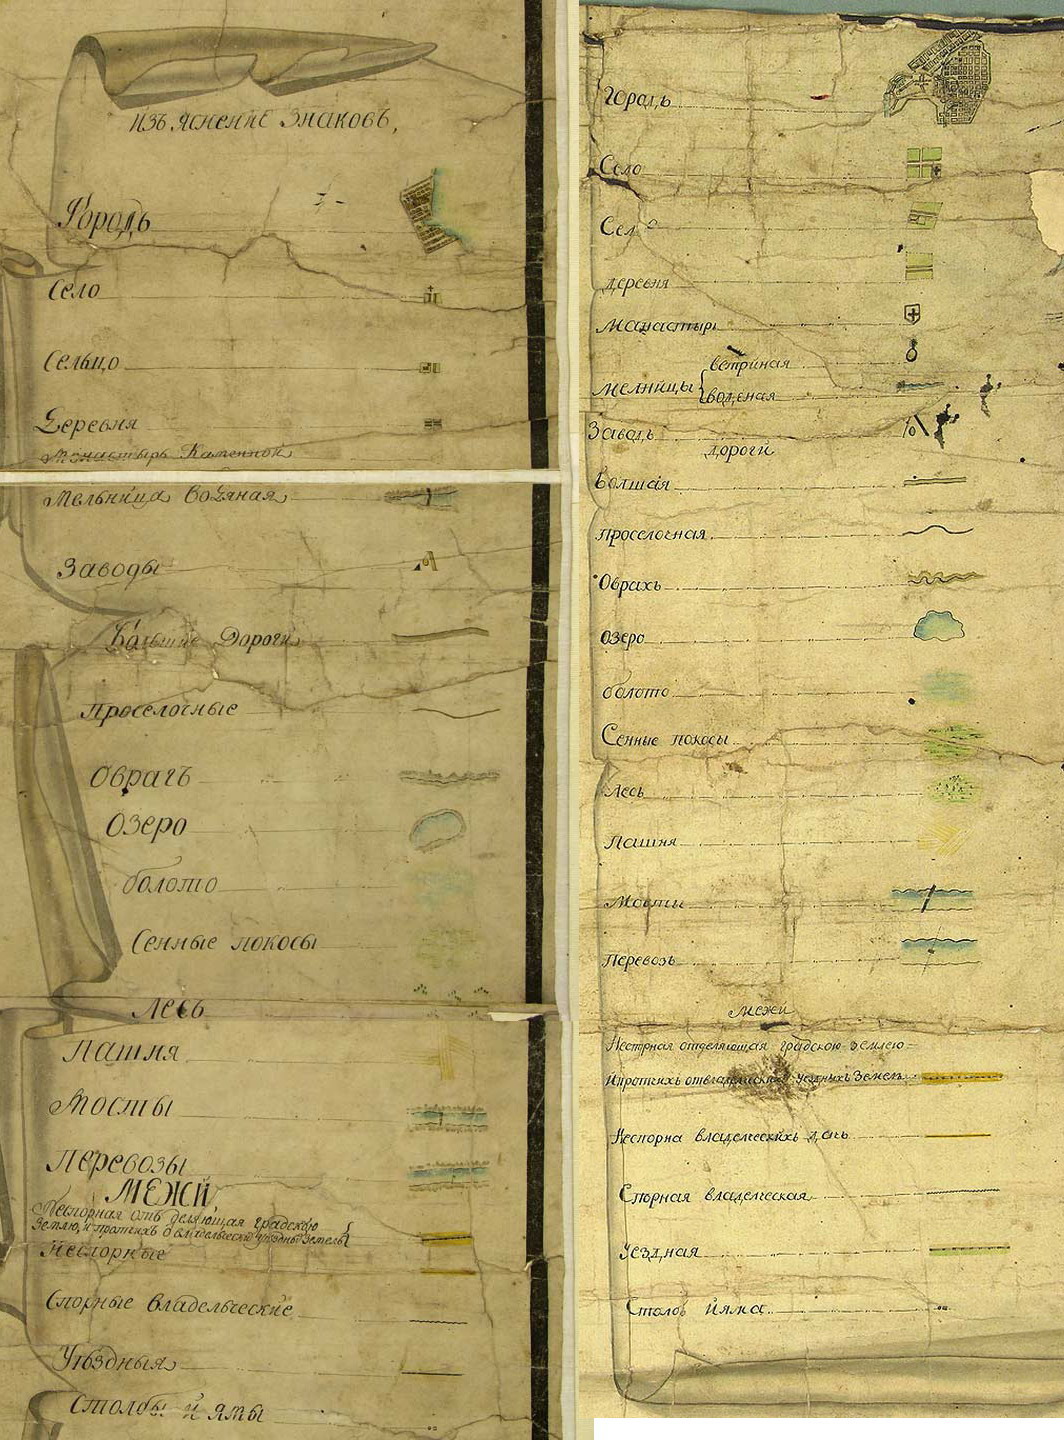 Изъяснение Знаковъ,
Городъ
Село
Сельцо
Деревня
Монастырь Каменной
Мельница водяная
Заводы
Большие Дороги
Проселочные
Оврагъ
Озеро
болото
Сенные покосы
Лесъ
Пашня
Мосты
Перевозы
МЕЖИ
Неспорная отъ деляющая градскую
Землю, и протчихъ о владельчески уездны земель
Неспорные
Спорные владельческие
Уѣздныя
Столбы и ямы
городъ
Село
Сел
деревня
Манастырь
ветрйная
мелнйцы
водѣная
Заводъ
дорогй
Болшая
проселочная
Оврахъ
Озеро
болото
Сенные покосы
Лесъ
Пашня
Мосты
Перевозъ
межй
Неспрная отделяющая градскою землею
Йпротчихъ уездныхъ Земель
Неспорна владелческихъ дачь
Спорная владелческая
уездная
Столбъ Йяма